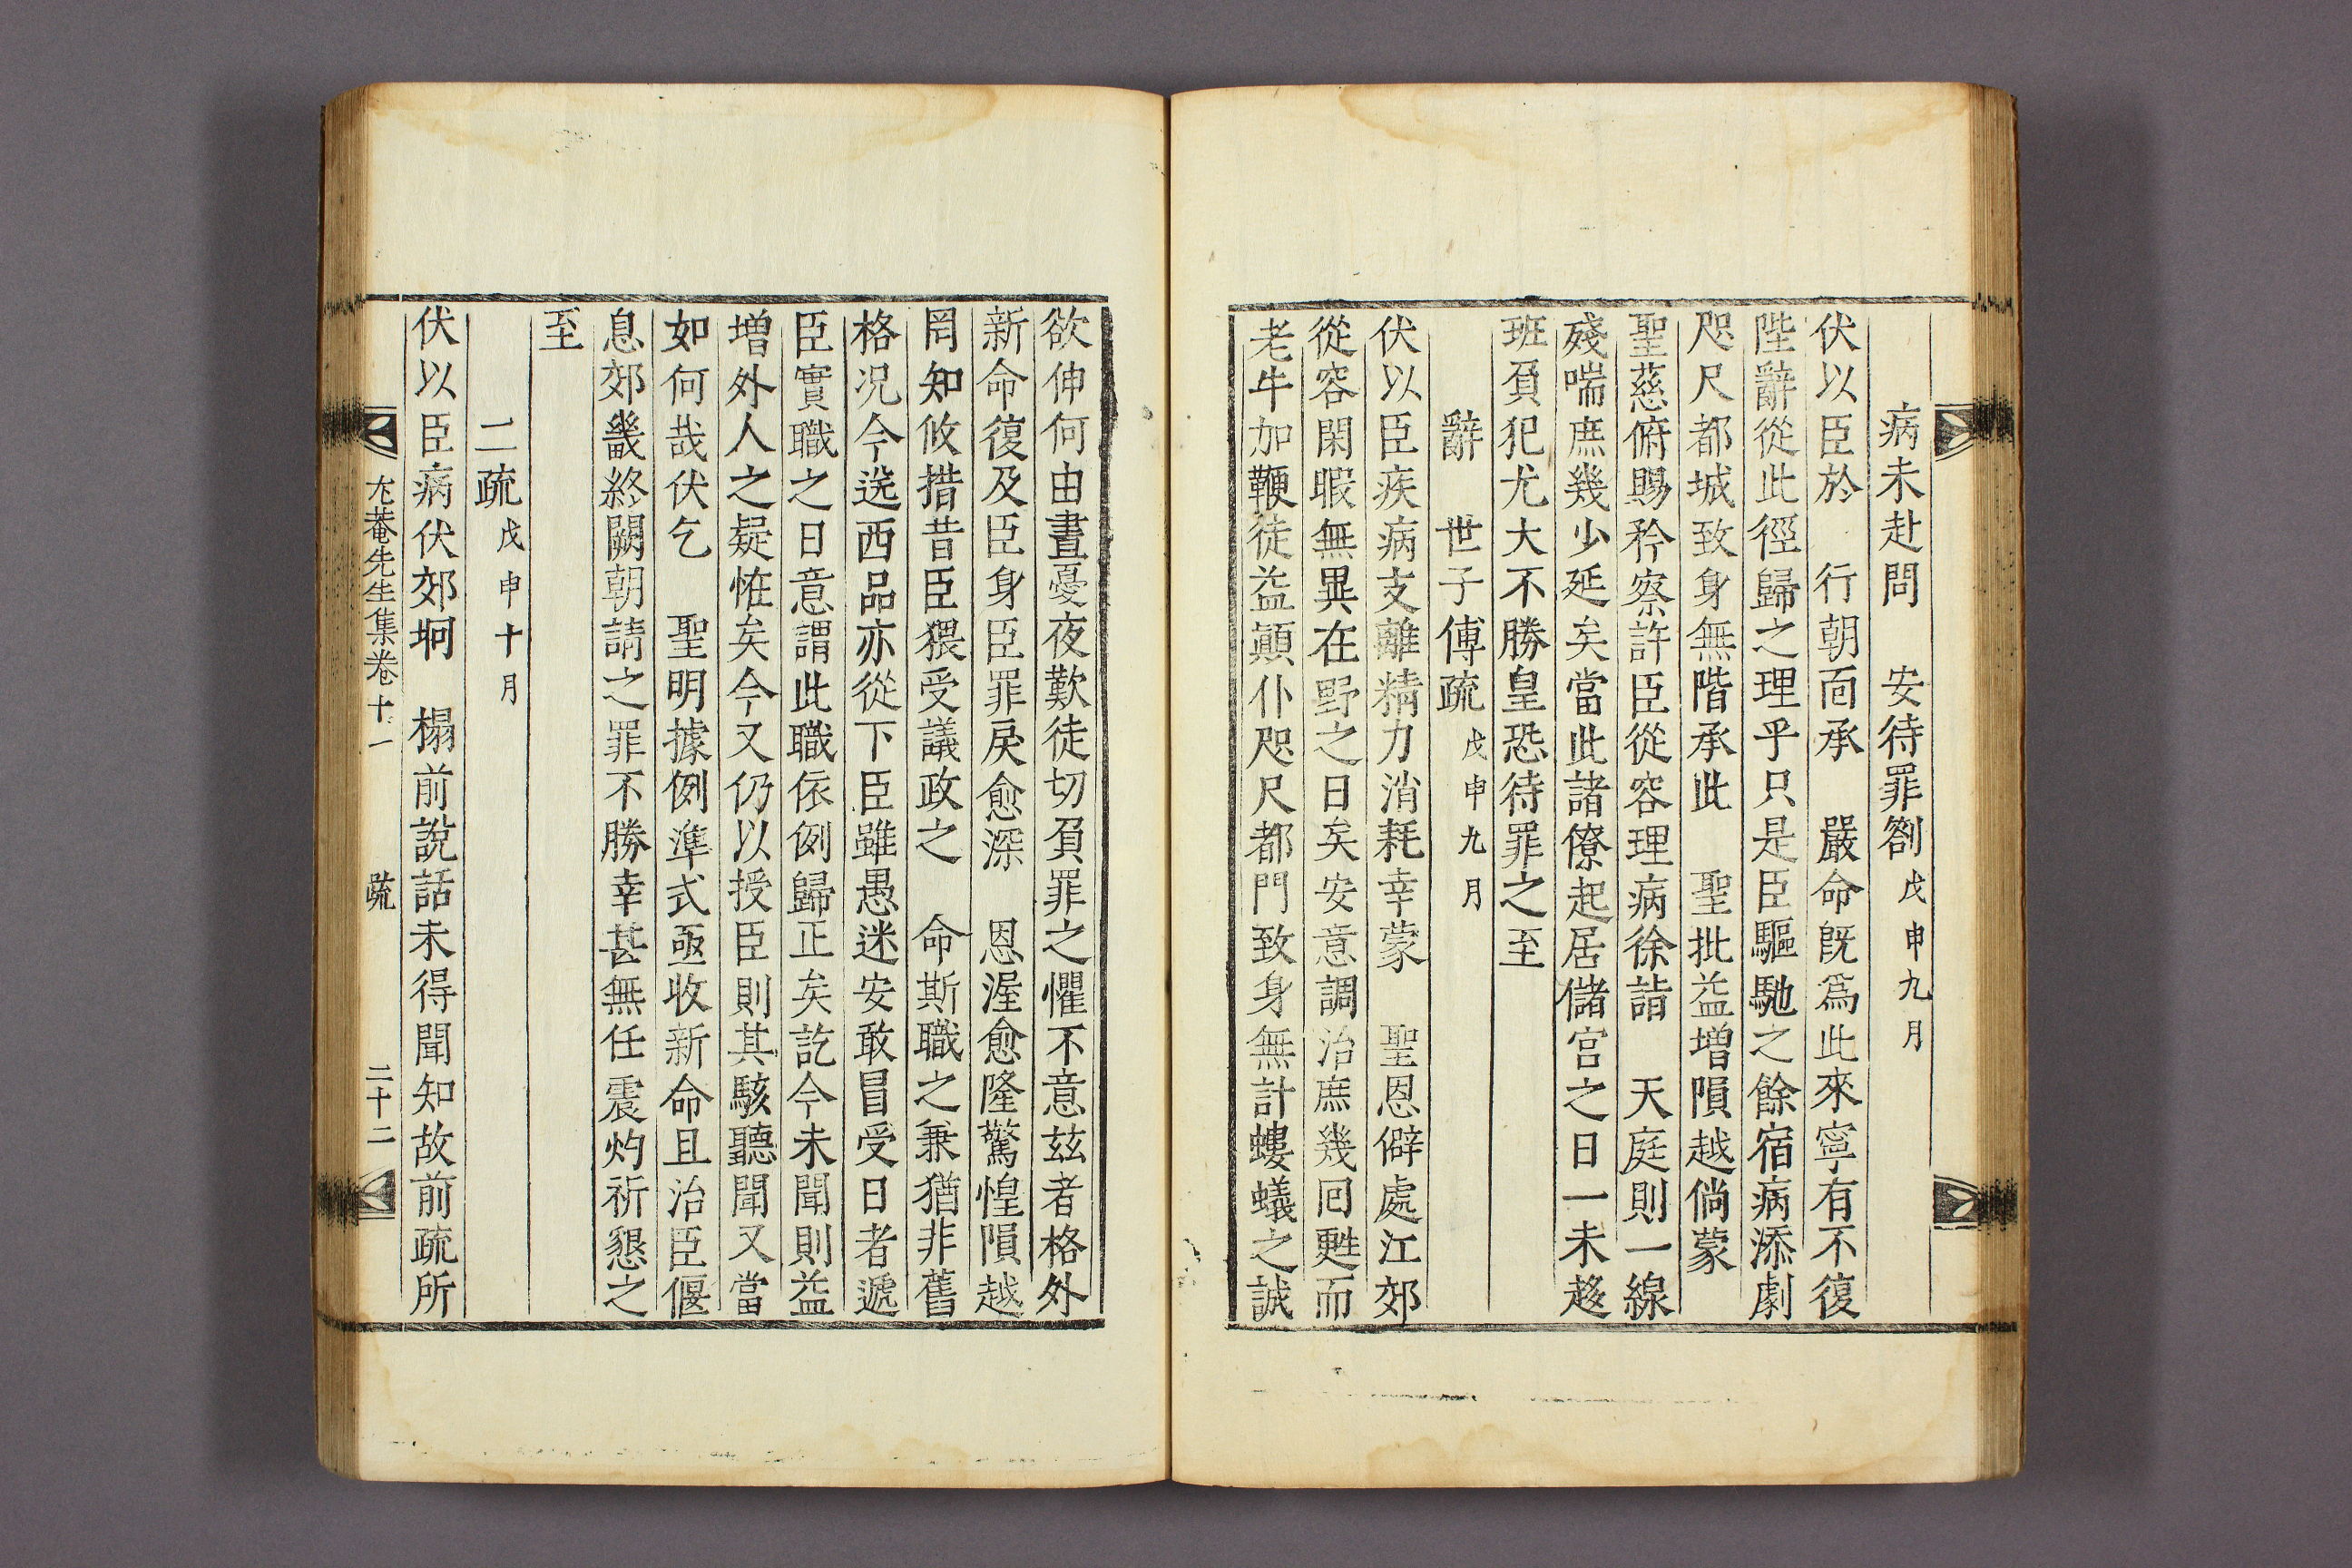 病未赴問　安待罪劄戊申九月
伏以臣於　行朝而承　嚴命旣爲此來寧有不復
陛辭從此徑歸之理乎只是臣驅馳之餘宿病添劇
咫尺都城致身無階承此　聖批益增隕越倘蒙
聖慈俯賜矜察許臣從容理病徐詣　天庭則一線
殘喘庶幾少延矣當此諸僚起居儲宮之日一未趍
班負犯尤大不勝皇恐待罪之至
辭　世子傅疏戊申九月
伏以臣疾病支離精力消耗幸蒙　聖恩僻處江郊
從容閑暇無異在野之日矣安意調治庶幾囘甦而
老牛加鞭徒益顚仆咫尺都門致身無計螻蟻之誠
欲伸何由晝憂夜歎徒切負罪之懼不意玆者格外
新命復及臣身臣罪戾愈深　恩渥愈隆驚惶隕越
罔知攸措昔臣猥受議政之　命斯職之兼猶非舊
格况今選西品亦從下臣雖愚迷安敢冒受日者遞
臣實職之日意謂此職依例歸正矣訖今未聞則益
增外人之疑恠矣今又仍以授臣則其駭聽聞又當
如何哉伏乞　聖明據例準式亟收新命且治臣偃
息郊畿終闕朝請之罪不勝幸甚無任震灼祈懇之
至
二疏戊申十月
伏以臣病伏郊坰　榻前說話未得聞知故前疏所
尤菴先生集卷十一　疏　二十二